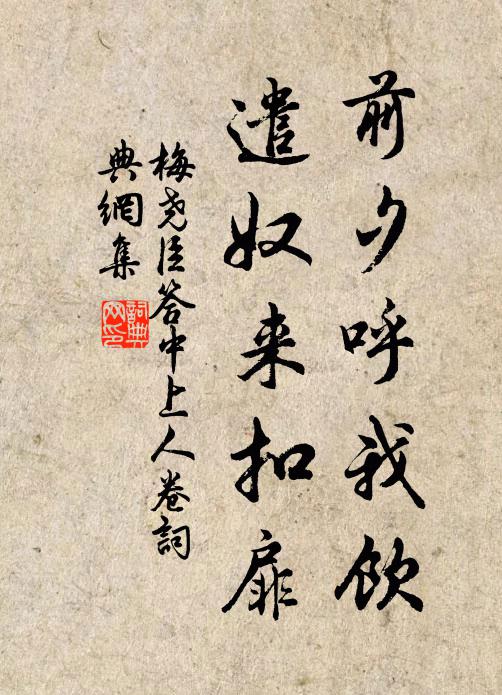 前夕呼我饮
遣奴来扣扉
梅尧臣答中上人卷詞
典網集
詞典网印